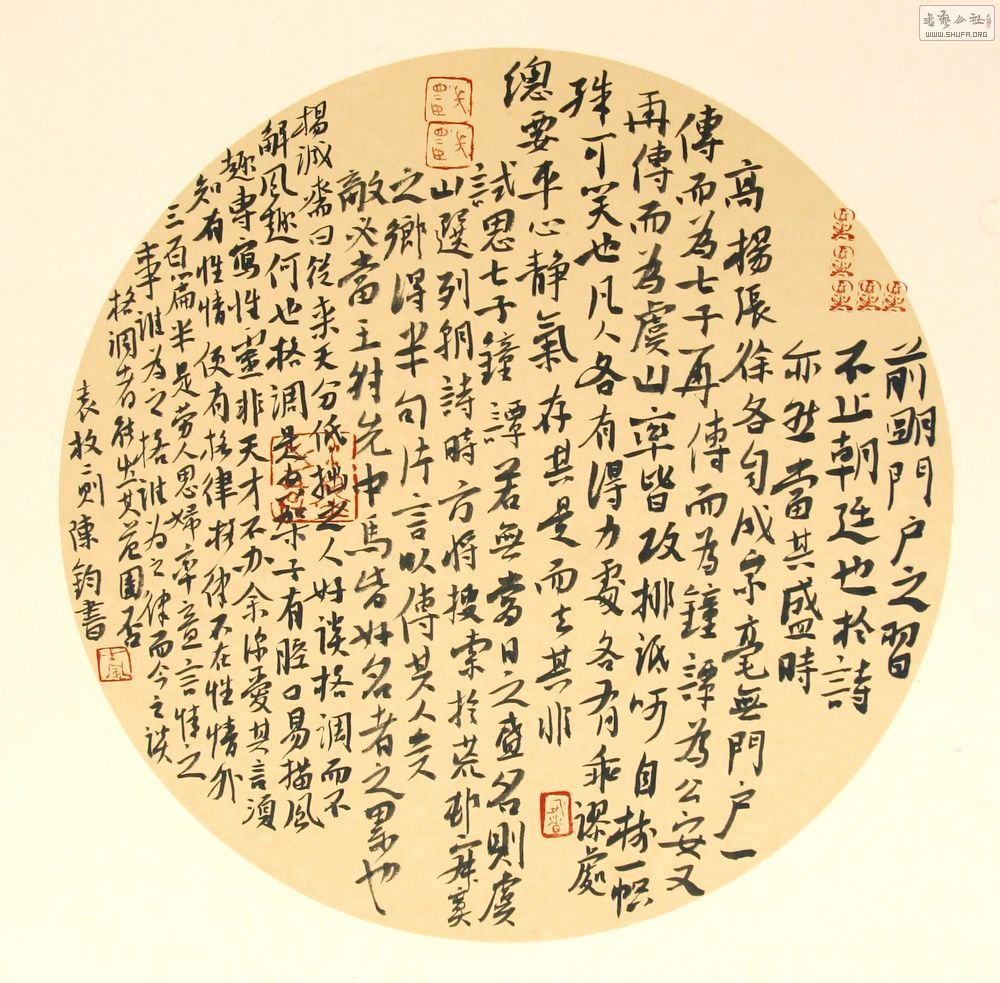 前明門户之習
不止朝廷也於詩
亦然當其盛時
高楊張徐各自成家毫無門户一
傳而為七子再傳而為鐘譚為公安又
再傳而為虞山率皆攻排詆呵自樹一幟
殊可笑也凡人各有得力處各有乖謬處
總要平心靜氣存其是而去其非
試思七子鐘譚若無當日之盛名則虞
山選列朝詩時方將搜索於荒邨寂寞
之鄉得半句片言以傳其人矣
敵必當王射先中馬皆好名者之累也
楊誠齋曰從來天分低拙之人好談格調而不
解風趣何也格調是空架子有腔口易描風
趣專寫性靈非天才不办余深愛其言須
知有性情便有格律格律不在性情外
三百篇半是劳人思婦率意言情之
事誰為之格誰為之律而今之談
格調者能出其范圍否
袁枚二则陳鈞書
書藝公社
WWW.SHUFA.ORG